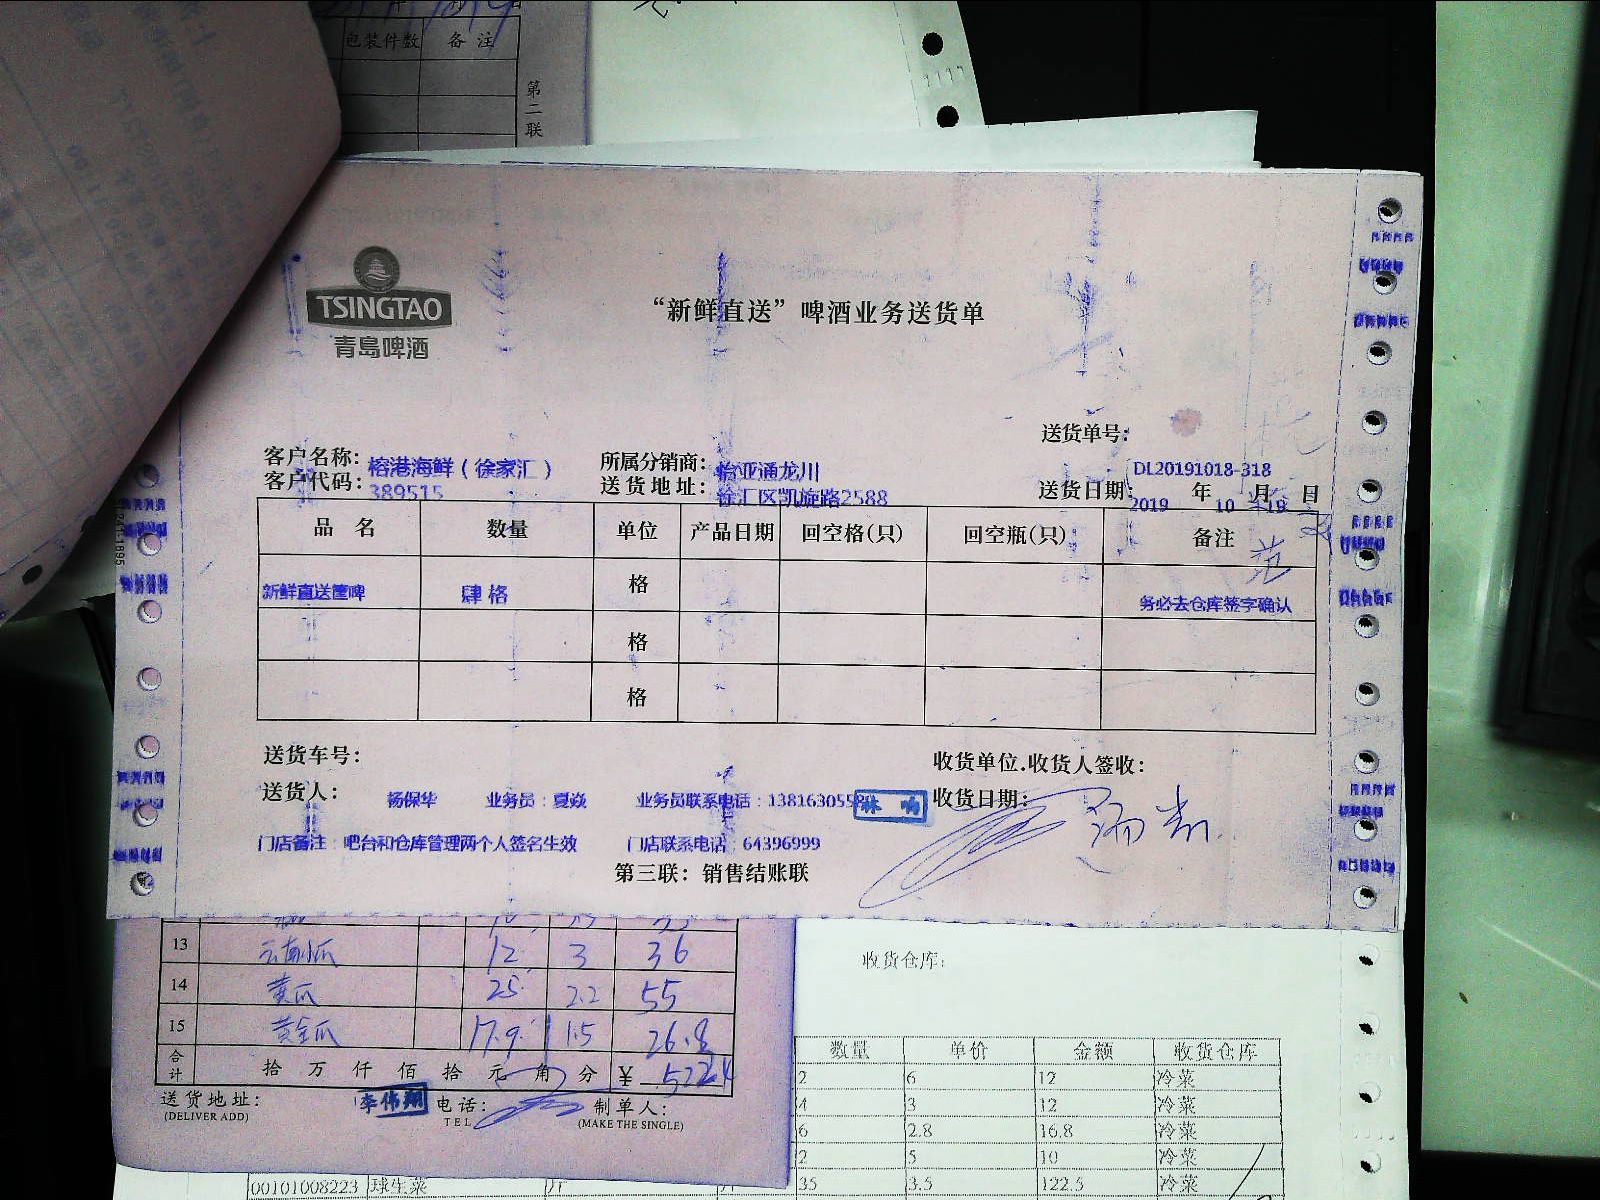 包装件数 备注
第二联
TSINGTAO
青島啤酒
“新鲜直送”啤酒业务送货单
送货单号:
DL20191018-318
客户名称: 榕港海鲜（徐家汇） 所属分销商: 怡亚通龙川
客户代码: 389515 送货地址: 徐汇区凯旋路2588 送货日期: 2019 年 10 月 19 日
品名 数量 单位 产品日期 回空格(只) 回空瓶(只) 备注
新鲜直送筐啤 肆格 格 务必去仓库签字确认
格
格
送货车号: 收货单位.收货人签收:
送货人: 杨保华 业务员：夏焱 业务员联系电话：138163055 林 收货日期:
门店备注：吧台和仓库管理两个人签名生效 门店联系电话：64396999
第三联: 销售结账联
13 云南小瓜 12 3 36
14 黄瓜 25 2.2 55
15 黄金瓜 17.9 1.5 26.8
合计 拾 万 仟 佰 拾 元 角 分 ¥
送货地址: 李伟翔 电话: 制单人:
(DELIVER ADD) TEL (MAKE THE SINGLE)
收货仓库:
数量 单价 金额 收货仓库
2 6 12 冷菜
4 3 12 冷菜
6 2.8 16.8 冷菜
2 5 10 冷菜
00101008223 球生菜 斤 35 3.5 122.5 冷菜